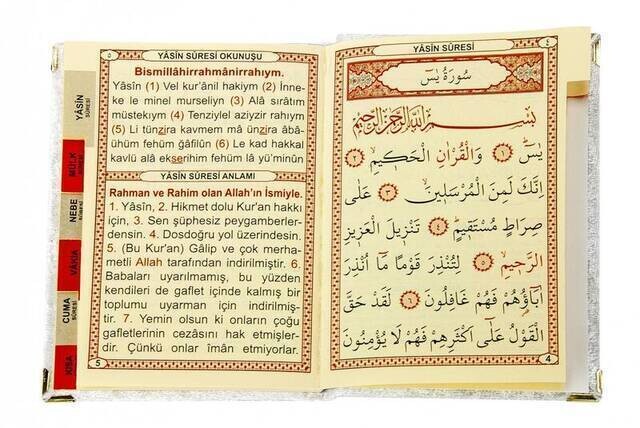 ٥ YÂSİN SÛRESİ OKUNUŞU
Bismillâhirrahmânirrahıym.
Yâsîn (1) Vel kur'ânil hakiym (2) İnne-
ke le minel murseliyn (3) Alâ sırâtim
müstekıym (4) Tenziylel aziyzir rahıym
(5) Li tünzira kavmem mâ ünzira âbâ-
ühüm fehüm ğâfilûn (6) Le kad hakkal
kavlü alâ ekserihim fehüm lâ yü'minûn
YÂSİN SÛRESİ ANLAMI
Rahman ve Rahim olan Allah'ın İsmiyle.
1. Yâsîn, 2. Hikmet dolu Kur'an hakkı
için, 3. Sen şüphesiz peygamberler-
densin. 4. Dosdoğru yol üzerindesin.
5. (Bu Kur'an) Gâlip ve çok merha-
metli Allah tarafından indirilmiştir. 6.
Babaları uyarılmamış, bu yüzden
kendileri de gaflet içinde kalmış bir
toplumu uyarman için indirilmiş-
tir. 7. Yemin olsun ki onların çoğu
gafletlerinin cezasını hak etmişler-
dir. Çünkü onlar îmân etmiyorlar.
5
YÂSİN
SÛRESİ
MÜLK
SÛRESİ
NEBE
SÛRESİ
VÂKIA
CUMA
SÛRESİ
KISA
YÂSİN SÛRESİ ٤
سُورَةُ يٰسٓ
بِسْمِ اللّٰهِ الرَّحْمٰنِ الرَّحِيمِ
يٰسٓ ﴿١﴾ وَالْقُرْاٰنِ الْحَكِيمِ ﴿٢﴾
اِنَّكَ لَمِنَ الْمُرْسَلِينَ ﴿٣﴾ عَلٰى
صِرَاطٍ مُسْتَقِيمٍ ﴿٤﴾ تَنْزِيلَ الْعَزِيزِ
الرَّحِيمِ ﴿٥﴾ لِتُنْذِرَ قَوْمًا مَٓا اُنْذِرَ
اٰبَٓاؤُهُمْ فَهُمْ غَافِلُونَ ﴿٦﴾ لَقَدْ حَقَّ
الْقَوْلُ عَلٰٓى اَكْثَرِهِمْ فَهُمْ لَا يُؤْمِنُونَ
4